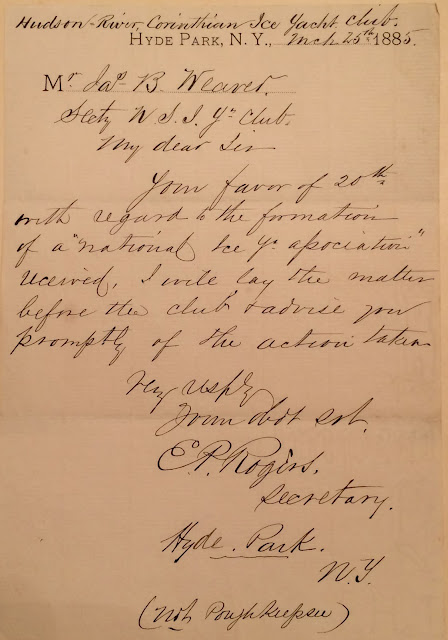 Hudson-River, Corinthian Ice Yacht Club.
HYDE PARK, N. Y., Mch 25th 1885.
Mr. Jas. B. Weaver.
Secty N. S. I. Yt Club.
My dear Sir
Your favor of 20th
with regard to the formation
of a "national Ice Yt association"
received, I will lay the matter
before the club & advise you
promptly of the action taken
very respfy
Your obdt svt.
E. P. Rogers.
Secretary.
Hyde Park.
N.Y.
(Not Poughkeepsie)